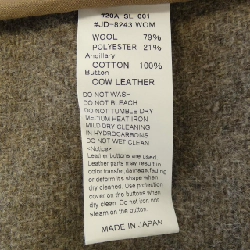 #JD-8243 WCM
WOOL 79%
POLYESTER 21%
Ancillary
COTTON 100%
Button
COW LEATHER
DO NOT WASH
DO NOT BLEACH
DO NOT TUMBLE DRY
MEDIUM HEAT IRON
MILD DRY CLEANING
IN HYDROCARBONS
DO NOT WET CLEAN
<Notice>
Leather buttons are used.
Leather parts may result in
color transfer, damage fading
or deform its shape when
dry cleaned. Use protection
cover on the buttons when
dry clean. Do not iron and
steam on the button.
MADE IN JAPAN